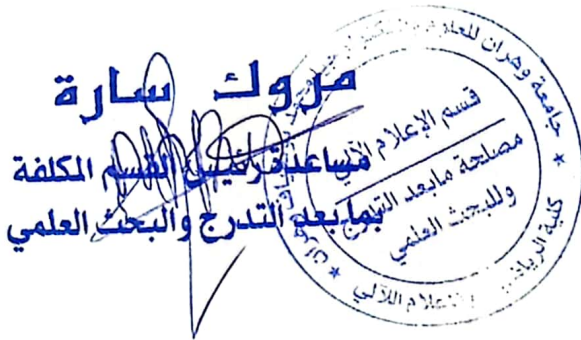 مروك سارة
مساعدة رئيس القسم المكلفة
بما بعد التدرج والبحث العلمي
جامعة وهران للعلوم
قسم الإعلام الآلي
مصلحة مابعد التدرج
وللبحث العلمي
كلية الرياضيات والاعلام اللآلي